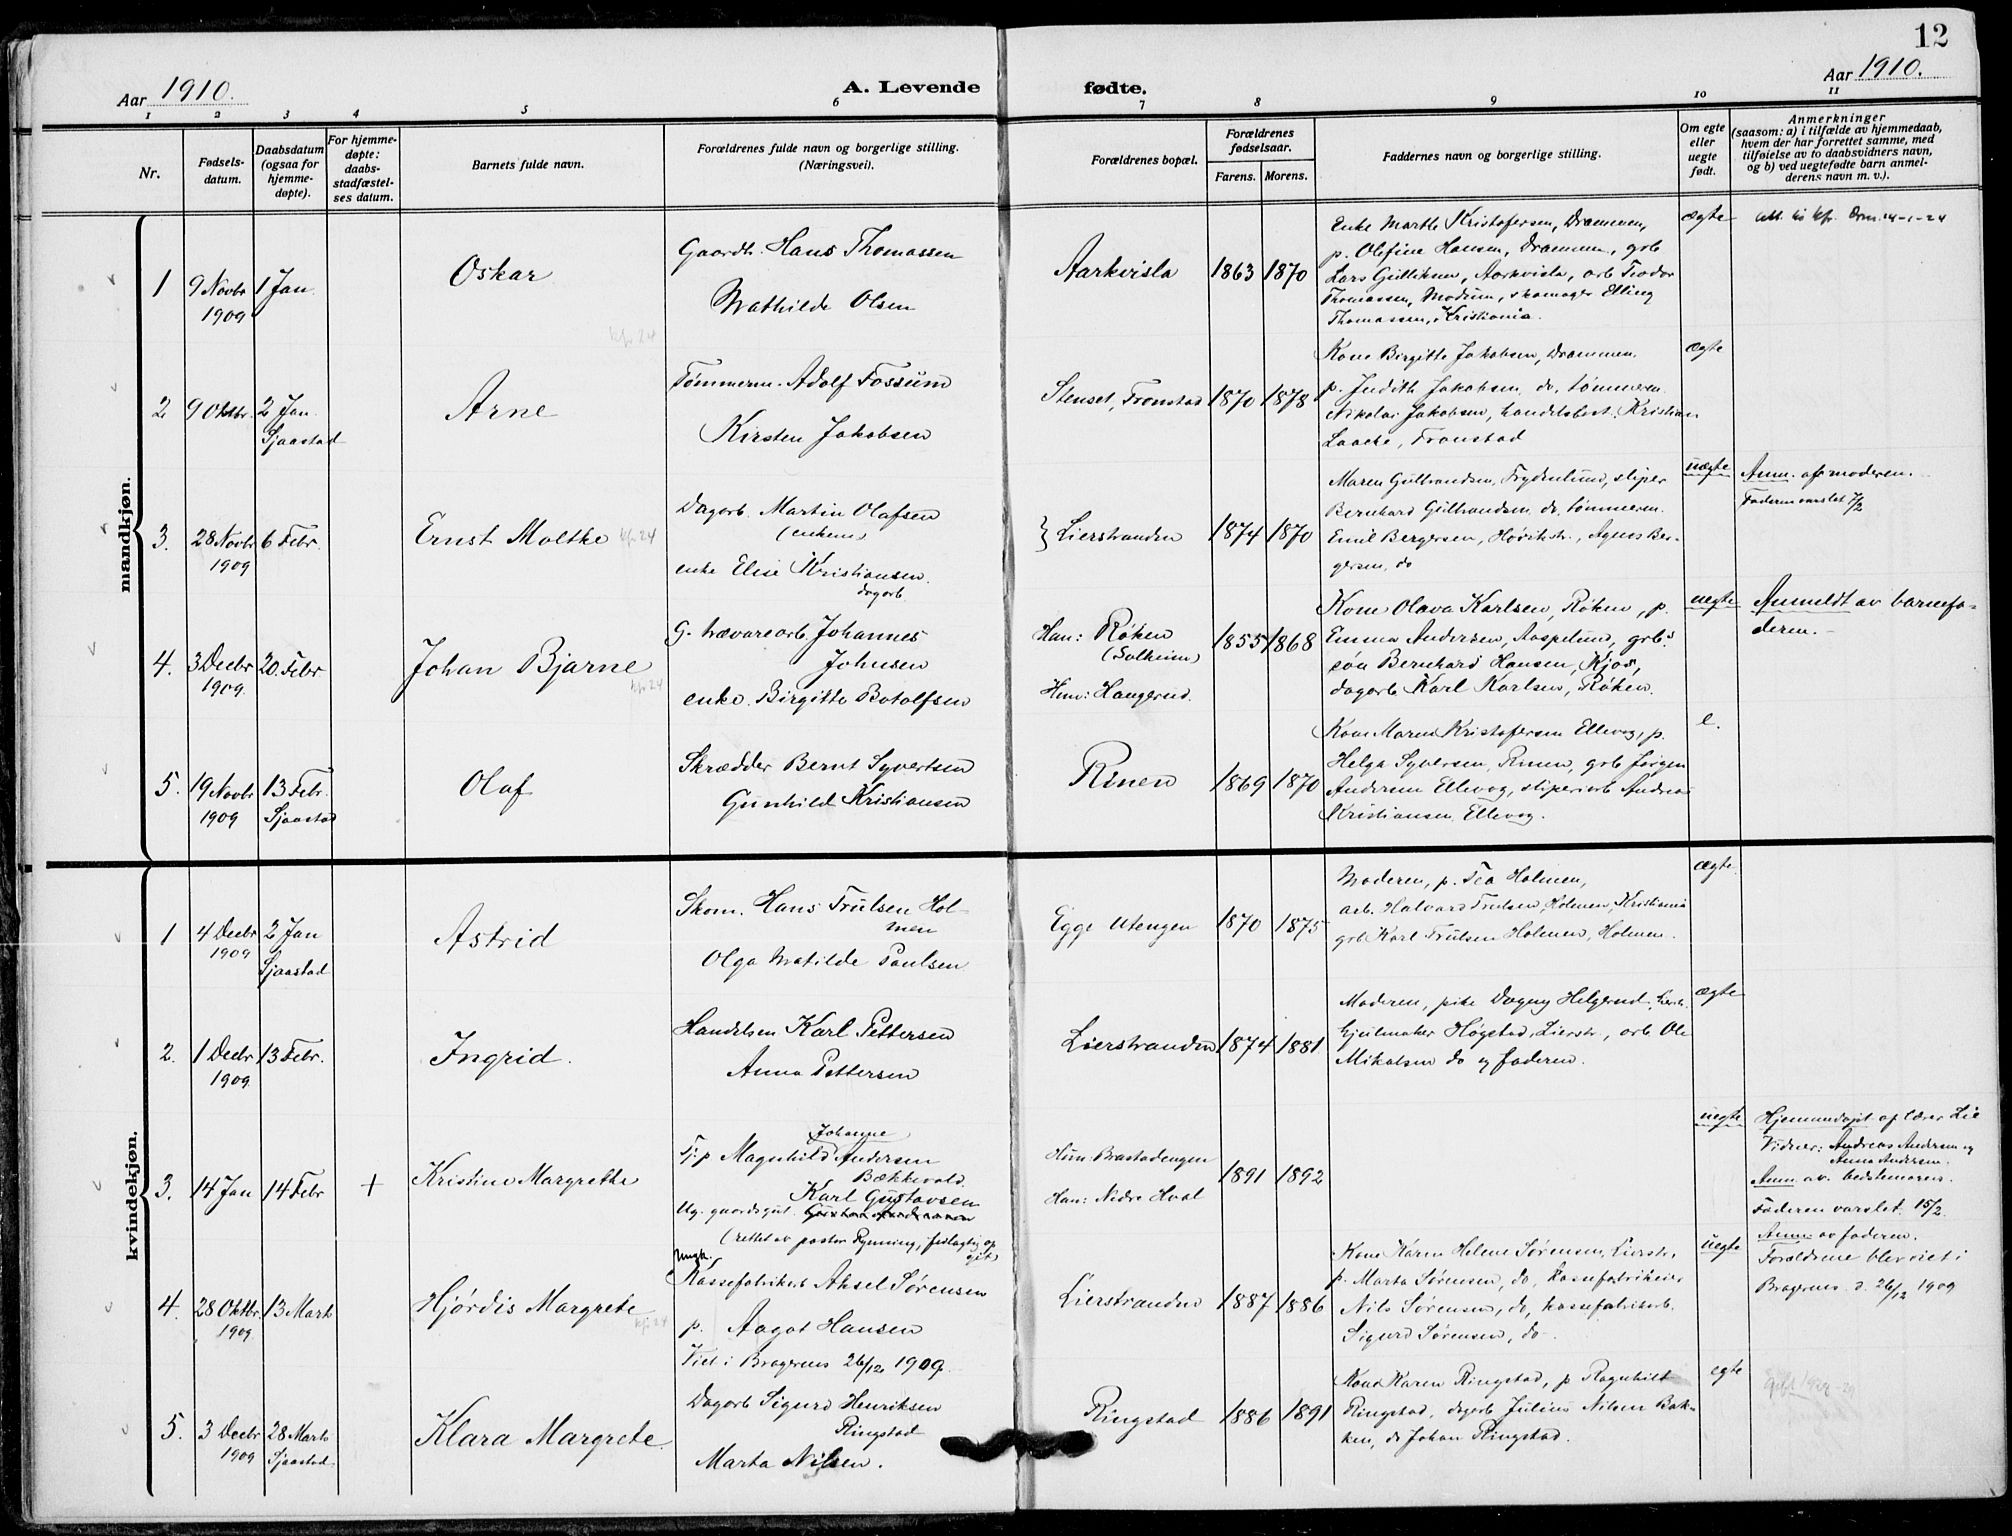 12
Aar 1910.
A. Levende fødte.
Aar 1910.
1 2 3 4 5 6 7 8 9 10 11
Nr.
Fødsels-
datum.
Daabsdatum
(ogsaa for
hjemme-
døpte).
For hjemme-
døpte:
daabs-
stadfæstel-
ses datum.
Barnets fulde navn.
Forældrenes fulde navn og borgerlige stilling.
(Næringsvei).
Forældrenes bopæl.
Forældrenes
fødselsaar.
Farens. Morens.
Faddernes navn og borgerlige stilling.
Om egte
eller
uegte
født.
Anmerkninger
(saasom: a) i tilfælde av hjemmedaab,
hvem der har forrettet samme, med
tilføielse av to daabsvidners navn,
og b) ved uegtefødte barn anmel-
derens navn m. v.).
mandkjøn.
1
9 Novbr
1909
1 Jan.
Oskar
kfr 24
Gaardb. Hans Thomassen
Mathilde Olsen
Aarkvisla
1863 1870
Enke Marthe Kristofersen, Drammen,
p. Olefine Hansen, Drammen, grb
Lars Gulliksen, Aarkvisla, arb Teodor
Thomassen, Modum, skomager Elling
Thomassen, Kristiania.
ægte
att. til kfr. Drm. 14-1-24
2
9 Oktbr.
2 Jan.
Sjaastad
Arne
Tømmerm. Adolf Fossum
Kirsten Jakobsen
Stenset, Tronstad
1870 1878
Kone Birgitte Jakobsen, Drammen.
p. Judith Jakobsen, do, tømmerm.
Nikolai Jakobsen, handelsbest. Kristian
Laache, Tronstad
ægte
3.
28 Novbr
1909
6 Febr.
Ernst Moltke
kfr 24
Dagarb. Martin Olafsen
(enkem)
enke Elise Kristiansen.
dagarb.
Lierstranden
1874 1870
Maren Gulbrandsen, Frydenlund, sliper
Bernhard Gulbrandsen do, tømmerm.
Emil Bergersen, Høvikstr., Agnes Ber-
gersen, do
uægte
Anm. af moderen.
Faderen varslet 7/2
4.
3 Decbr
1909.
20. Febr
Johan Bjarne
kfr 24
G. trævarearb. Johannes
Johnsen
enke. Birgitte Botolfsen
Han: Røken
(Solheim)
Hun: Haugerud.
1855 1868
Kone Olava Karlsen, Røken, p.
Emma Andersen, Aaspelund, grbs
søn Bernhard Hansen, Kjos,
dagarb Karl Karlsen, Røken.
uegte
Anmeldt av barnefa-
deren.
5.
19 Novbr
1909
13 Febr.
Sjaastad
Olaf
Skrædder Bernt Syvertsen
Gunhild Kristiansen
Rinen
1869 1870
Kone Maren Kristofersen Ellevog, p.
Helga Syversen, Rinen, grb Jørgen
Andersen Ellevog, sliperiarb Andreas
Kristiansen, Ellevog.
e.
kvindekjøn.
1
4 Decbr
1909
2 Jan
Sjaastad
Astrid
Skom. Hans Trulsen Hol-
men
Olga Matilde Paulsen
Egge Utengen
1870 1875
Moderen, p. Tea Holmen,
arb. Halvard Trulsen, Holmen, Kristiania
grb Karl Trulsen Holmen, Holmen.
ægte
2.
1 Decbr
1909.
13 Febr.
Ingrid.
Handelsm Karl Pettersen
Anna Pettersen
Lierstranden
1874 1881
Moderen, pike Dagny Helgerud, Lierstr.
Gjeilmaker Høgstad, Lierstr., arb Ole
Mikalsen do og faderen.
ægte
3.
14 Jan
14 Febr
+
Kristine Margrethe
Johanne
Tj.p Magnhild Andersen
Bækkevold.
Karl Gustavsen
Ug. gaardsgut.
(rettet av pastor Rynning, feilagtig op
git)
Hun: Brastadengen
Han: Nedre Hval
1891 1892
uegte
Hjemmedøpt af lærer Lie
Vidner: Andreas Andersen og
Anna Andersen.
Anm. av bedstemoren.
Faderen varslet 15/2.
4.
28 Oktbr.
1909.
13 Marts
Hjørdis Margrete
kfr 24
Ungk.
Kassefabrikarb Aksel Sørensen
p. Aagot Hansen
Viet i Bragernes 26/12 1909.
Lierstranden
1887 1886
Kone Karen Helene Sørensen, Lierstr,
p. Marta Sørensen, do, kassefabrikeier
Nils Sørensen, do, kassefabrikarb.
Sigurd Sørensen, do.
uegte
Anm. av faderen.
Forældrene blev viet i
Bragernes d. 26/12 1909
5.
3 Decbr
1909
28 Marts
Sjaastad.
Klara Margrete.
Dagarb Sigurd Henriksen
Ringstad
Marta Nilsen.
Ringstad
1886 1891
Kone Karen Ringstad, p Ragnhilt
Ringstad, dagarb Julius Nilsen Bak-
ken, do Johan Ringstad.
egte